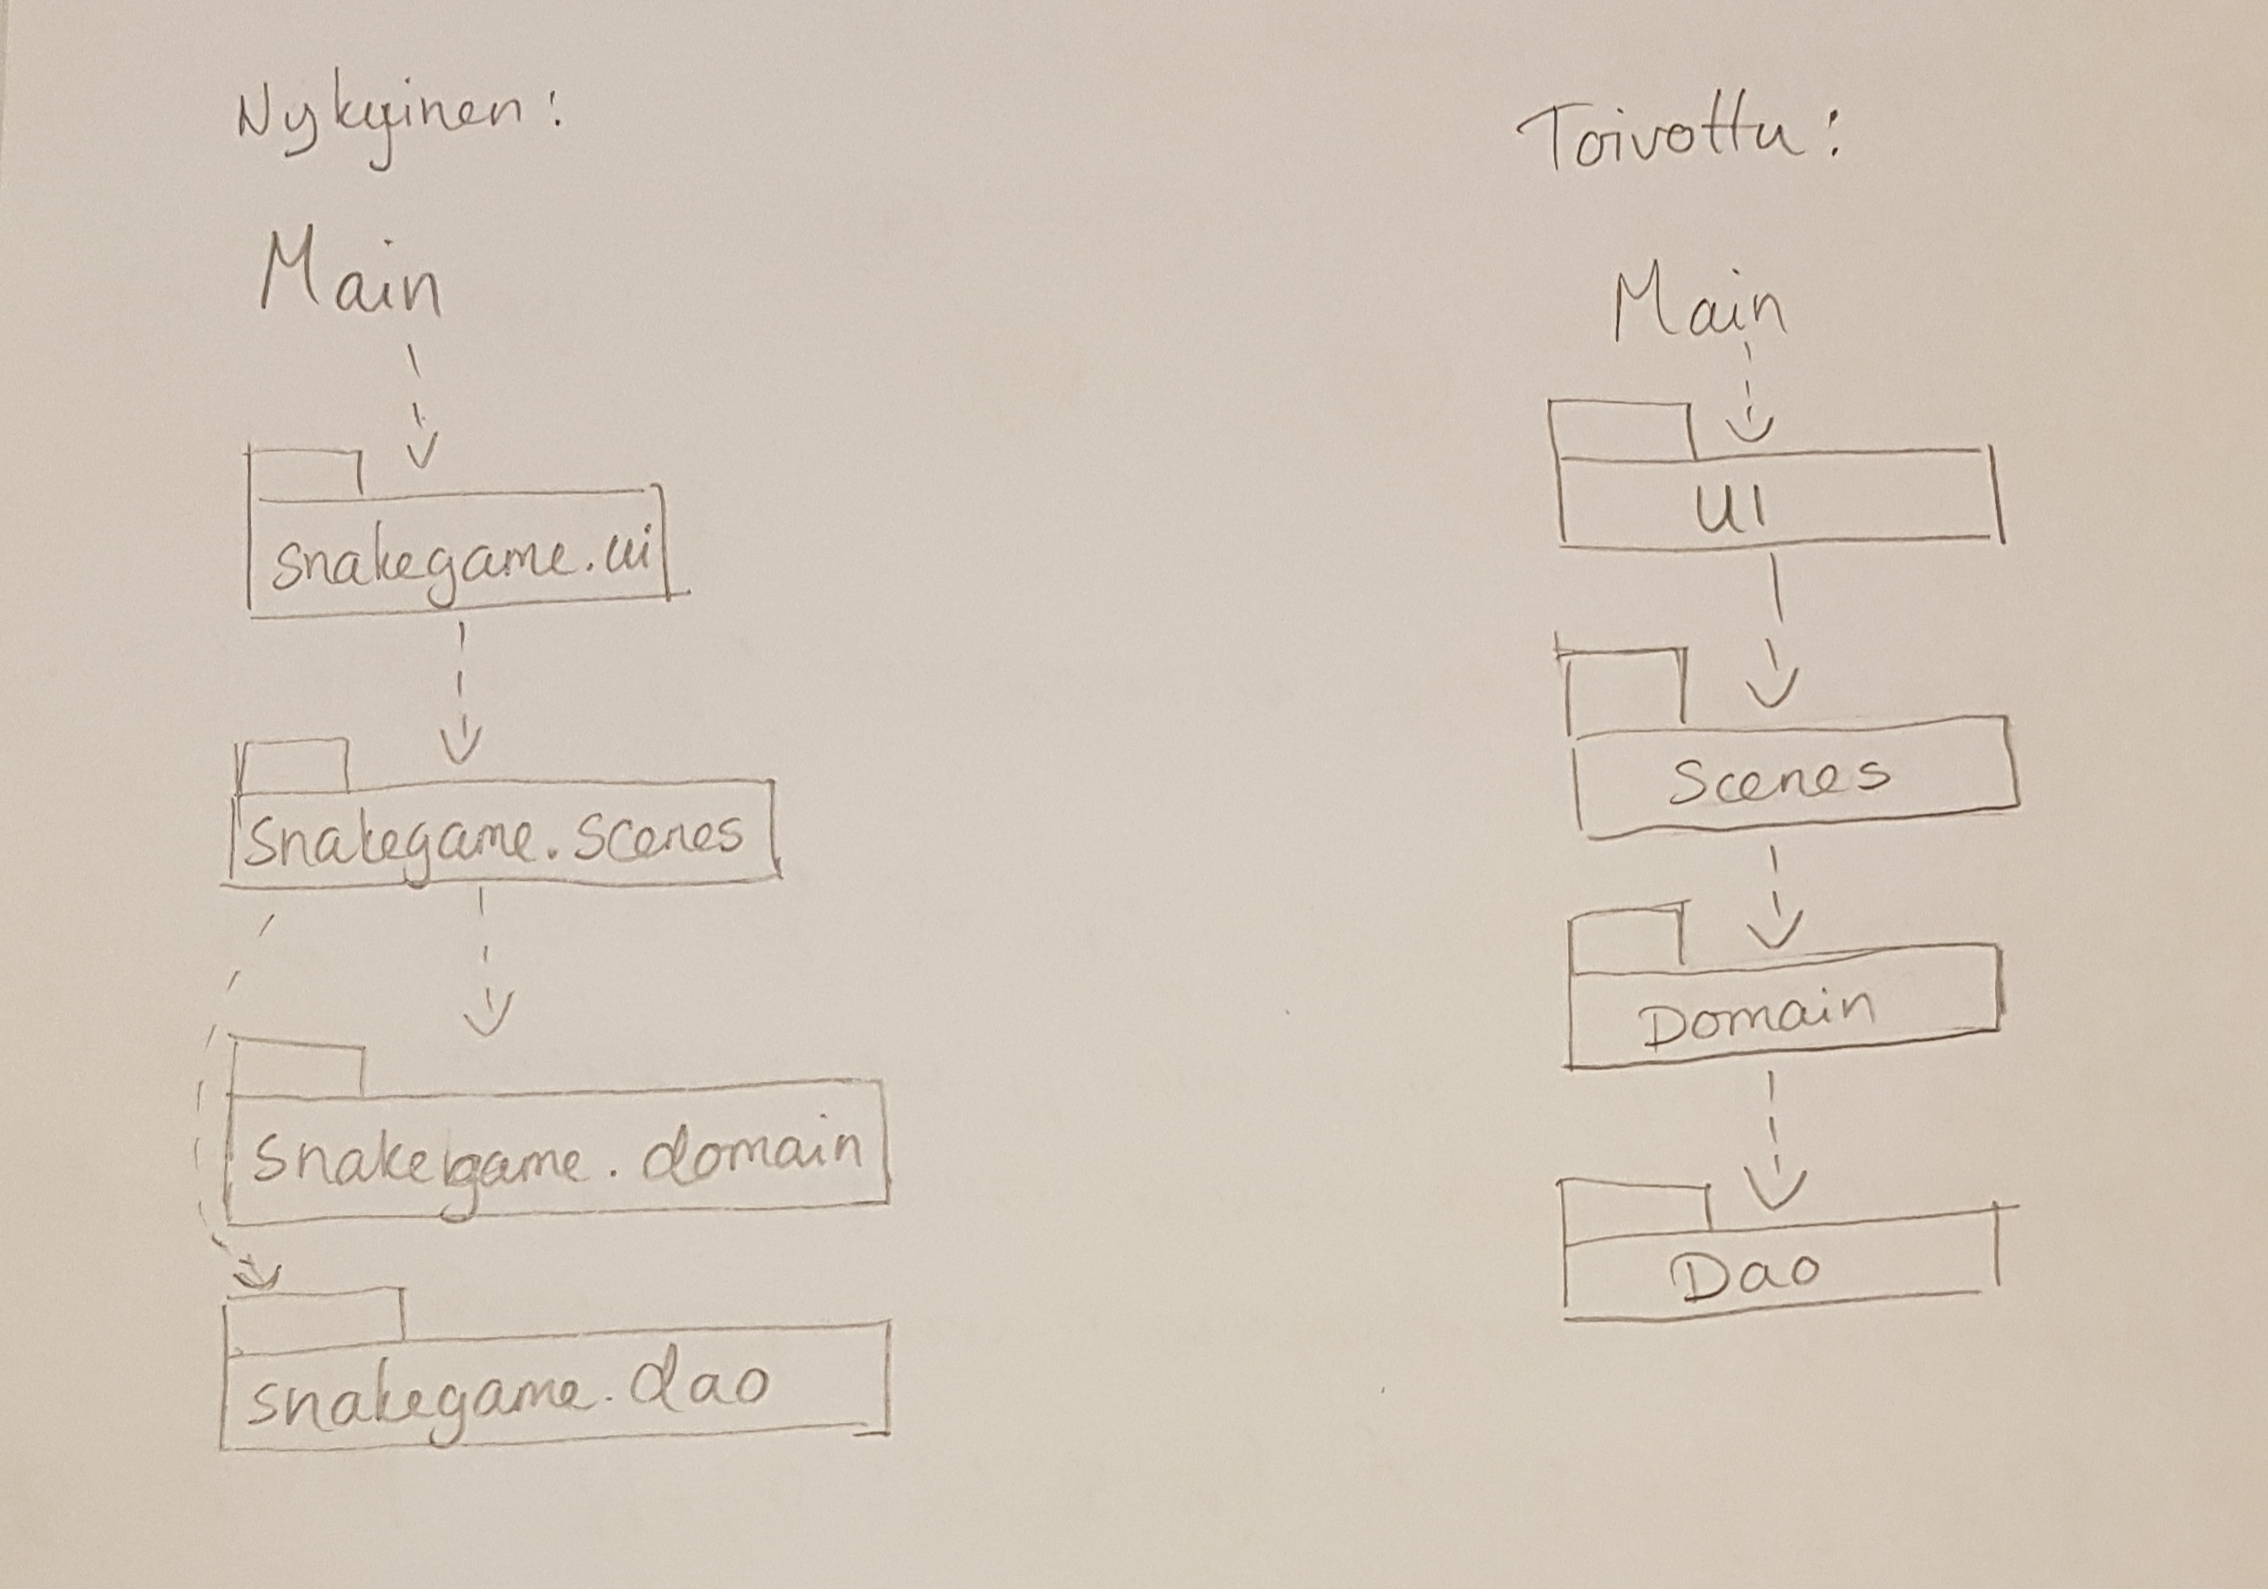 Nykyinen:
Main
snakegame.ui
snakegame.scenes
snakegame.domain
snakegame.dao
Toivottu:
Main
UI
Scenes
Domain
Dao